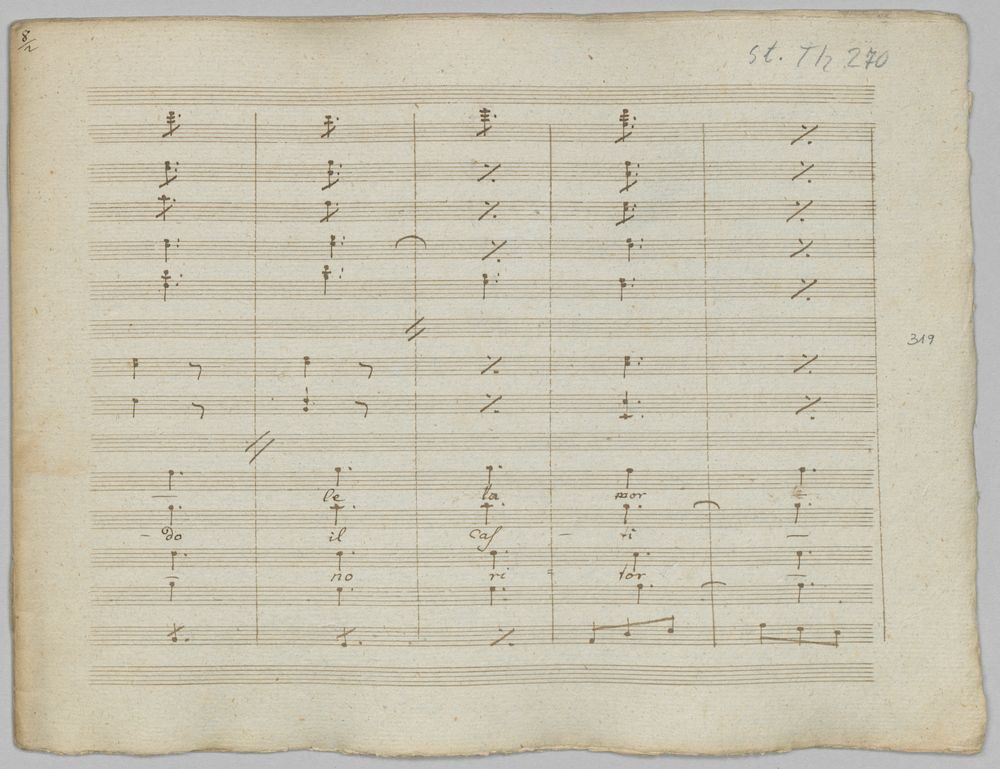 8/2
St. Th 270
319
— le la mor
- do il Cas - ti —
— no ri - tor —